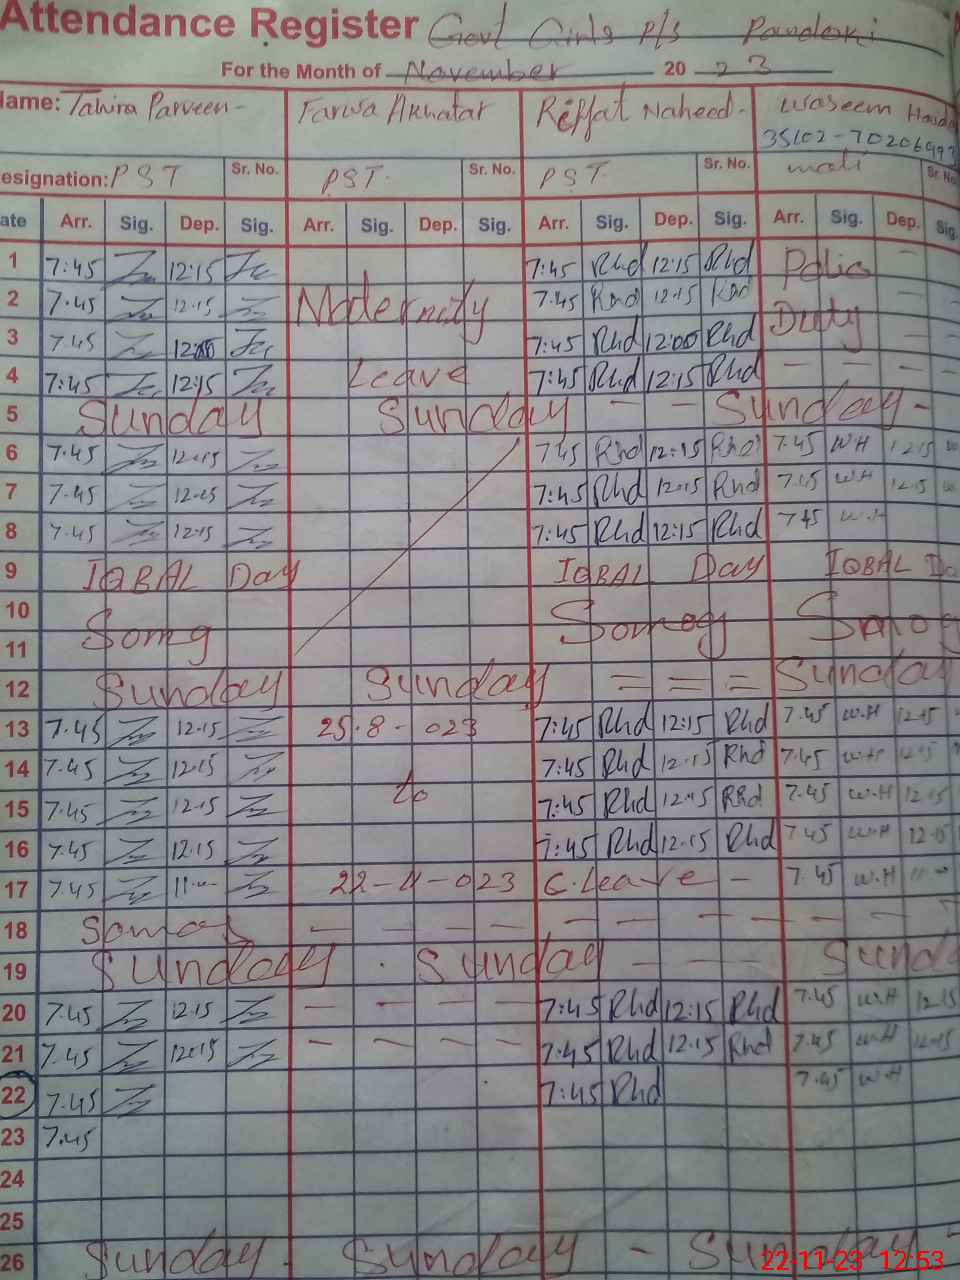 Attendance Register Govt Girls P/S Pandoki
For the Month of November 20 23
Name: Tahira Parveen- Farwa Akhatar Riffat Naheed- Waseem
35102-7020699
esignation: PST Sr. No. PST. Sr. No. PST. Sr. No. mali Sr. No
ate Arr. Sig. Dep. Sig. Arr. Sig. Dep. Sig. Arr. Sig. Dep. Sig. Arr. Sig. Dep. Sig.
1 7:45 12:15 7:45 Rhd 12:15 Rhd Polio -
2 7.45 12.15 Maternity 7.45 Rhd 12.15 Rhd Duty -
3 7.45 12:00 7:45 Rhd 12:00 Rhd -
4 7:45 12:15 Leave 7:45 Rhd 12:15 Rhd - - - -
5 Sunday Sunday - - Sunday -
6 7.45 12.15 7.45 Rhd 12:15 Rhd 7.45 WH 12.15
7 7.45 12.15 7:45 Rhd 12.15 Rhd 7.45 WH 12.15
8 7.45 12.15 7:45 Rhd 12:15 Rhd 7.45 W.H
9 IQBAL Day IQBAL Day IQBAL Da
10 Somg Somog Smog
11
12 Sunday Sunday = = = Sunday
13 7.45 12.15 25.8-023 7:45 Rhd 12:15 Rhd 7.45 W.H 12.15
14 7.45 12.15 7:45 Rhd 12.15 Rhd 7.45 W.H 12.15
15 7.45 12.15 to 7:45 Rhd 12.15 RRd 7.45 W.H 12.15
16 7.45 12.15 7:45 Rhd 12.15 Rhd 7.45 W.H 12.15
17 7.45 22-11-023 C.Leave - 7.45 W.H
18 - - - - - - - - - -
19 Sunday . Sunday - - - Sund
20 7.45 12.15 - - - - 7:45 Rhd 12:15 Rhd 7.45 W.H 12.15
21 7.45 12.15 - - - - 7:45 Rhd 12.15 Rhd 7.45 W.H 12.15
22 7.45 7:45 Rhd 7.45 W.H
23 7.45
24
25
26 Sunday Sunday - Sunday
22-11-23 12:53